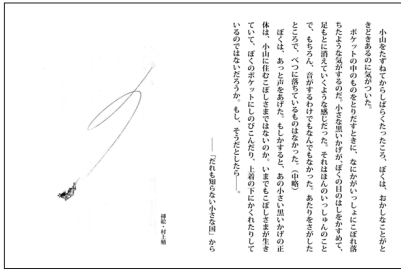 小山をたずねてからしばらくたったころ、ぼくは、おかしなことがと
きどきあるのに気がついた。
ポケットの中のものをとりだすときに、なにかがいっしょにこぼれ落
ちたような気がするのだ。小さな黒いかげが、ぼくの目のはしをかすめて、
足もとに消えていくような感じだった。それはほんのいっしゅんのこと
で、もちろん、音がするわけでもなんでもなかった。あたりをさがした
ところで、べつに落ちているものはなかった。（中略）
ぼくは、あっと声をあげた。もしかすると、あの小さい黒いかげの正
体は、小山に住むこぼしさまではないのか。いまでもこぼしさまが生き
ていて、ぼくのポケットにしのびこんだり、上着の下にかくれたりして
いるのではないだろうか。もし、そうだとしたら――。
――『だれも知らない小さな国』から
挿絵・村上勉